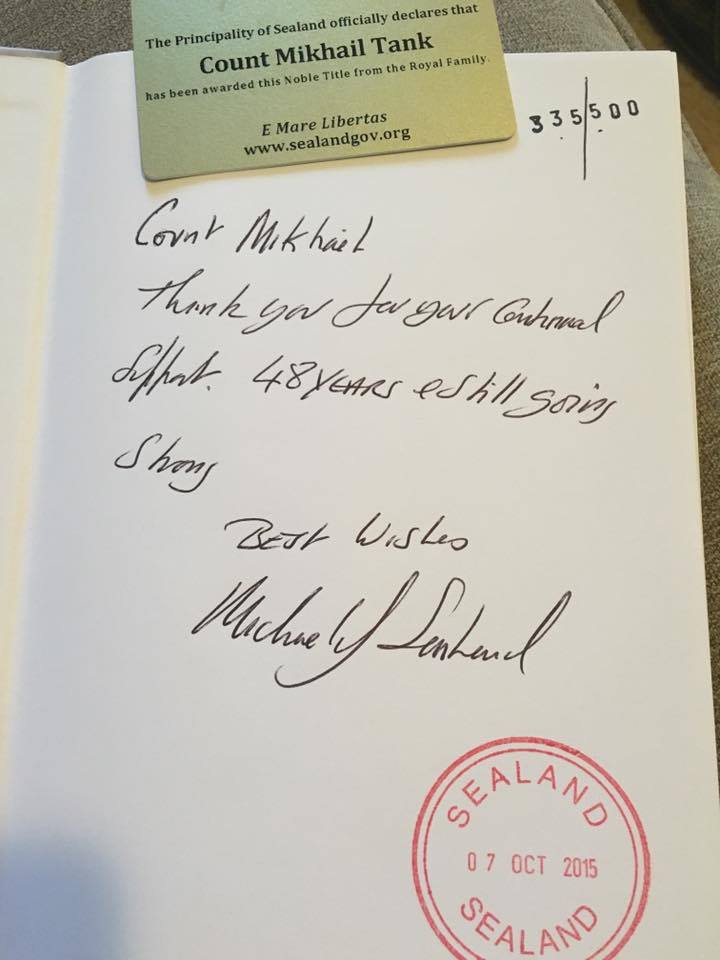 The Principality of Sealand officially declares that
Count Mikhail Tank
has been awarded this Noble Title from the Royal Family.
E Mare Libertas
www.sealandgov.org
335/500
Count Mikhail
Thank you for your Continual
Support. 48 YEARS & Still going
Strong
BEST Wishes
Michael of Sealand
SEALAND
07 OCT 2015
SEALAND